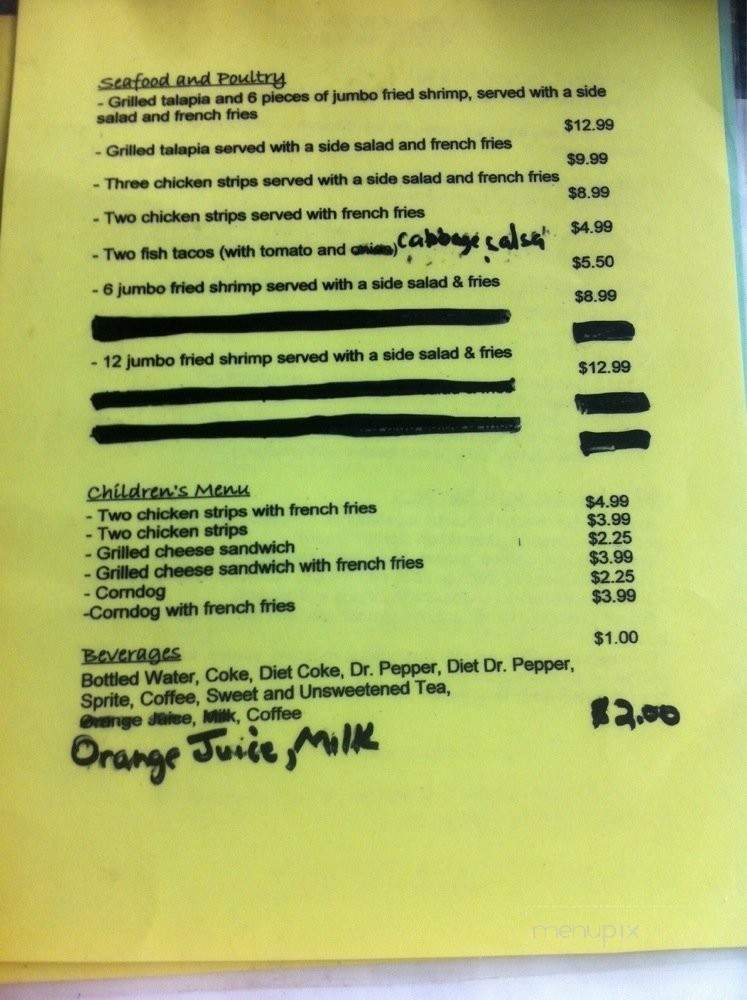 Seafood and Poultry
- Grilled talapia and 6 pieces of jumbo fried shrimp, served with a side
salad and french fries
$12.99
- Grilled talapia served with a side salad and french fries
$9.99
- Three chicken strips served with a side salad and french fries
$8.99
- Two chicken strips served with french fries
$4.99
- Two fish tacos (with tomato and onion) cabbage salsa
$5.50
- 6 jumbo fried shrimp served with a side salad & fries
$8.99
- 12 jumbo fried shrimp served with a side salad & fries
$12.99
Children's Menu
- Two chicken strips with french fries $4.99
- Two chicken strips $3.99
- Grilled cheese sandwich $2.25
- Grilled cheese sandwich with french fries $3.99
- Corndog $2.25
-Corndog with french fries $3.99
Beverages $1.00
Bottled Water, Coke, Diet Coke, Dr. Pepper, Diet Dr. Pepper,
Sprite, Coffee, Sweet and Unsweetened Tea,
Orange Juice, Milk, Coffee
Orange Juice, Milk $2.00
menupix